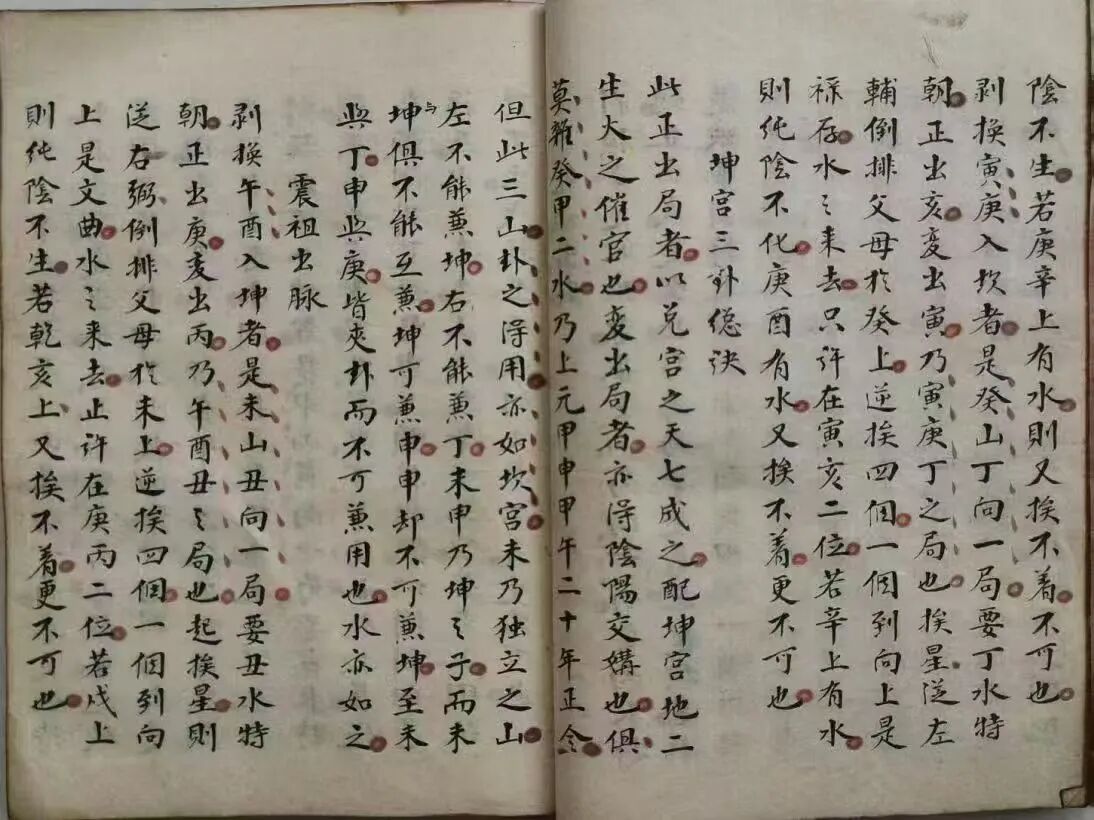 陰不生若庚辛上有水則又挨不着不可也
剥换寅庚入坎者是癸山丁向一局要丁水特
朝正出亥変出寅乃寅庚丁之局也挨星従左
輔倒排父母於癸上逆挨四個一個到向上是
禄存水之来去只許在寅亥二位若辛上有水
則纯陰不化庚酉有水又挨不着更不可也
坤宫三卦總訣
此正出局者以兑宫之天七成之配坤宫地二
生火之催官也変出局者亦得陰陽交媾也俱
莫離癸甲二水乃上元甲申甲午二十年正令
但此三山卦之得用亦如坎宫未乃独立之山
左不能兼坤右不能兼丁未申乃坤之子而未
与坤俱不能互兼坤可兼申申却不可兼坤至未
與丁申與庚皆夾卦而不可兼用也水亦如之
震祖出脉
剥换午酉入坤者是未山丑向一局要丑水特
朝正出庚変出丙乃午酉丑之局也起挨星則
送右弼倒排父母於未上逆挨四個一個到向
上是文曲水之来去止許在庚丙二位若戌上
則纯陰不生若乾亥上又挨不着更不可也